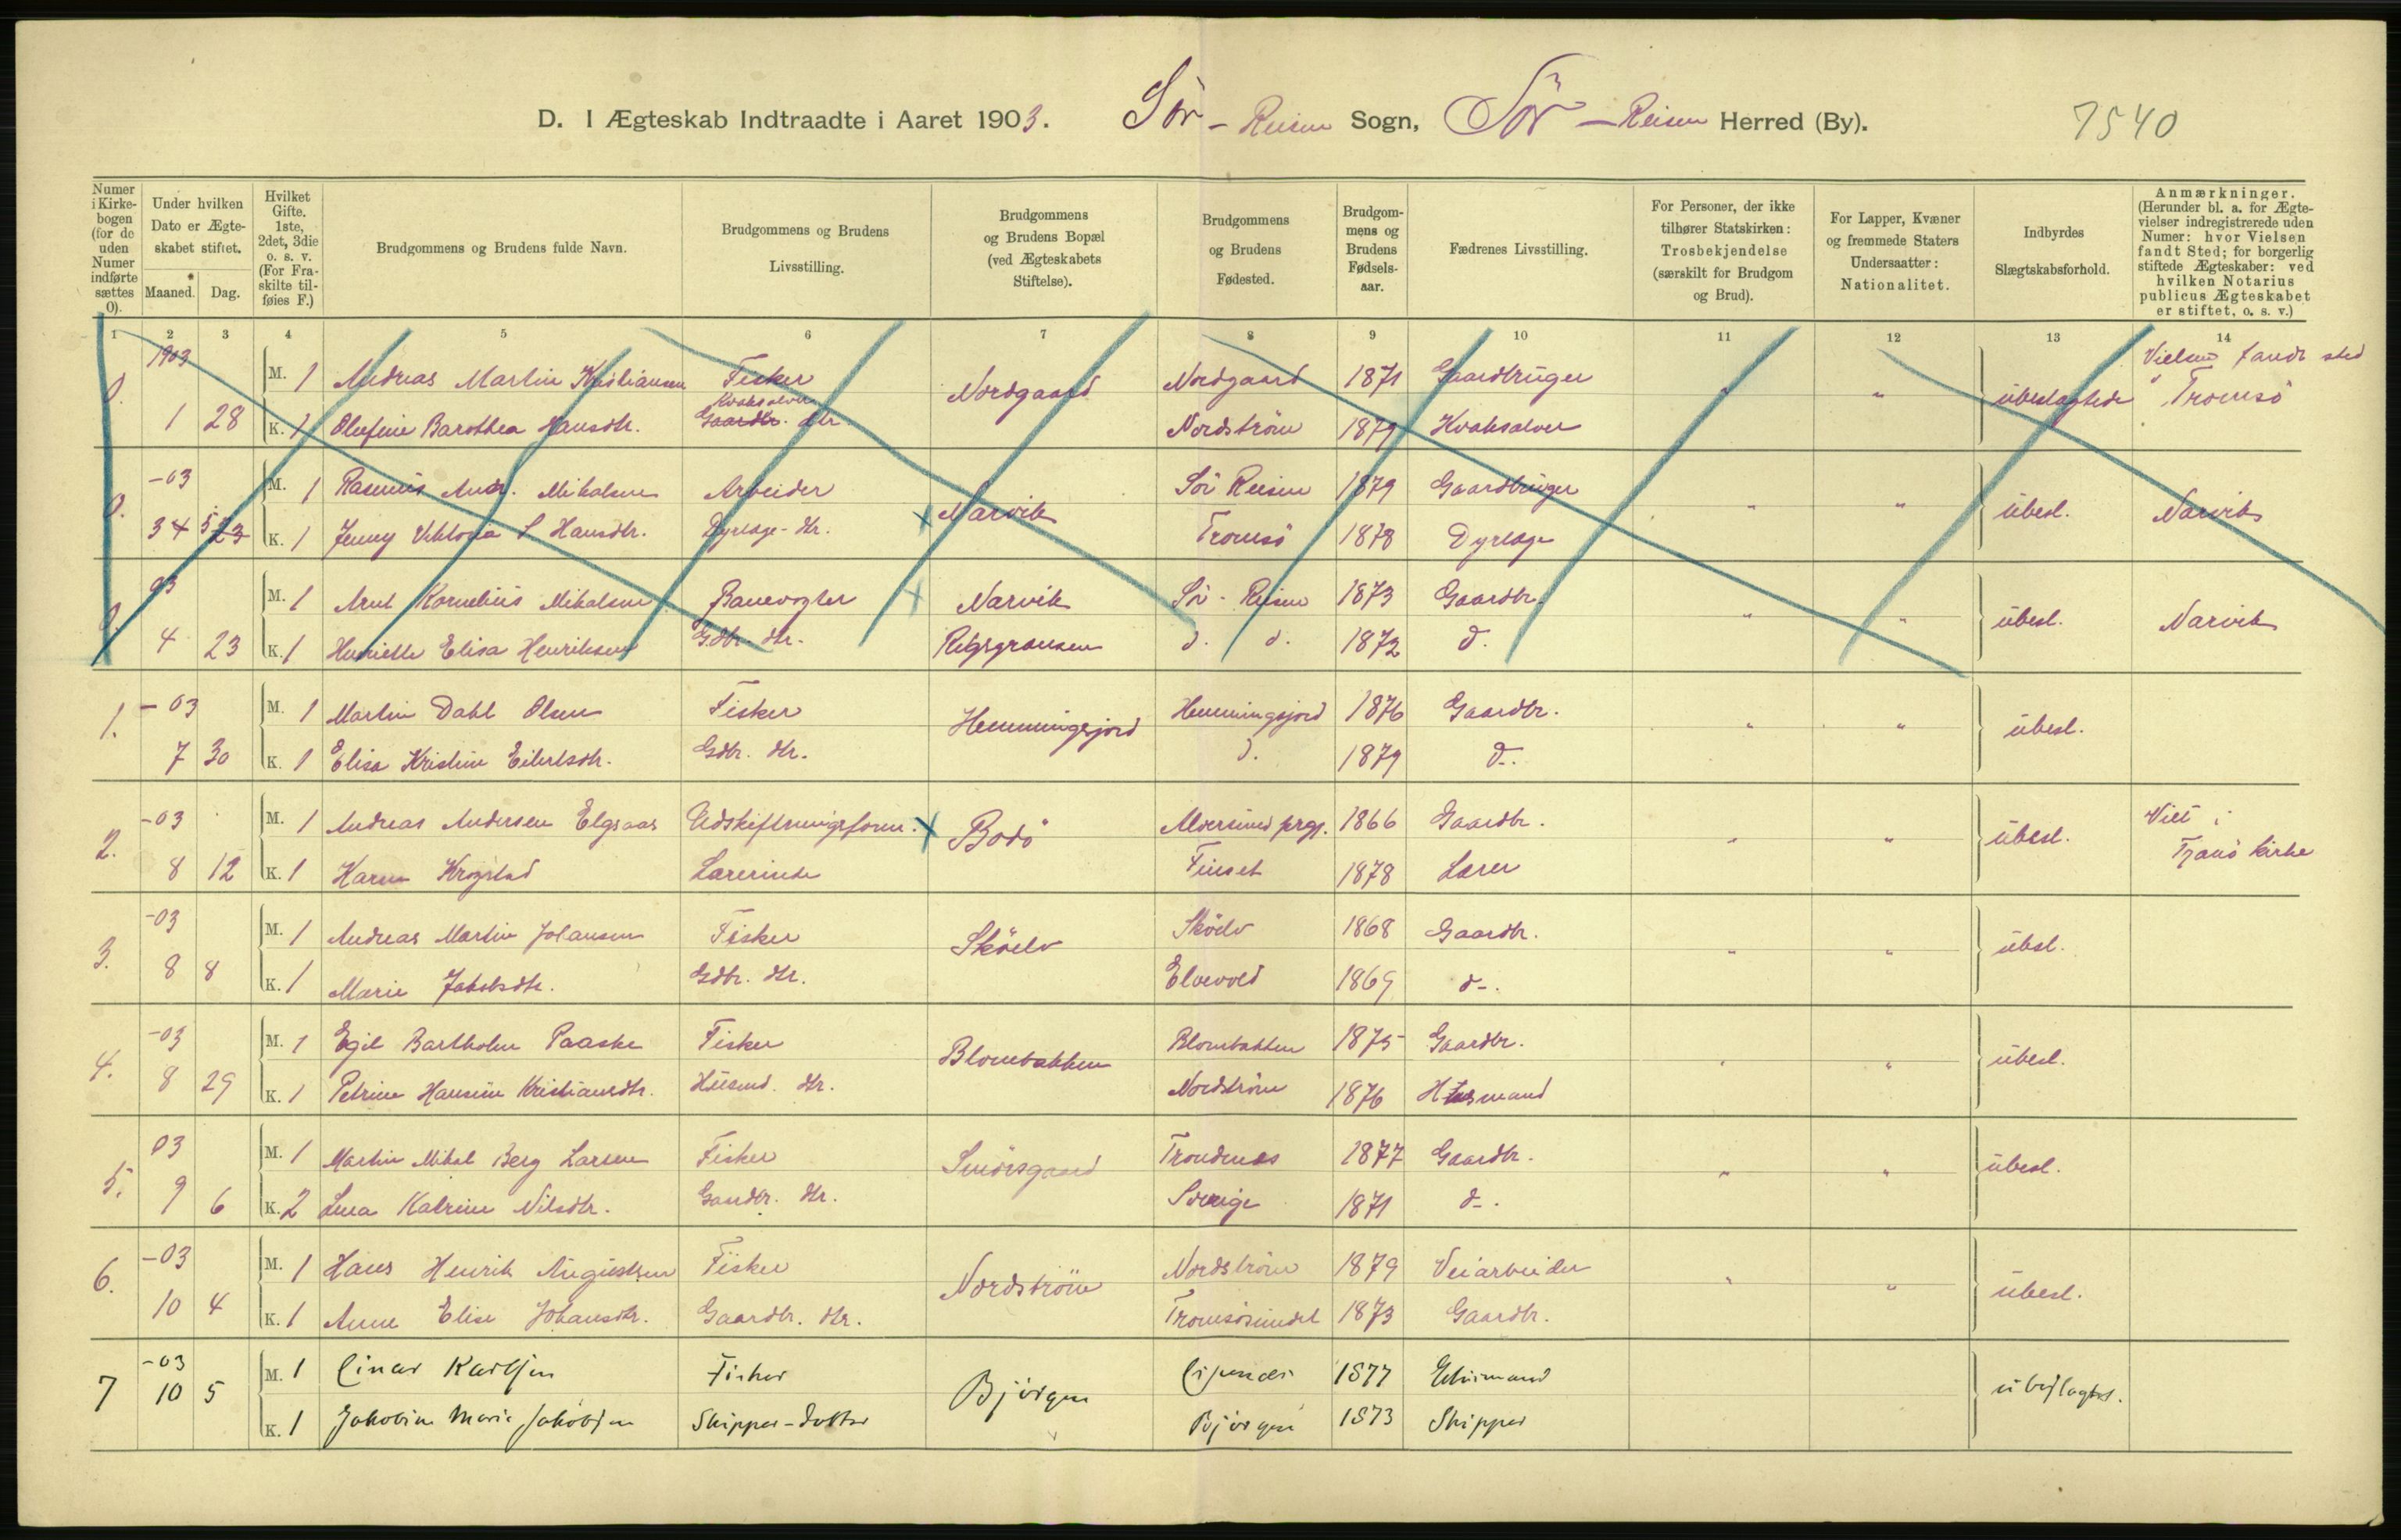 D. I Ægteskab Indtraadte i Aaret 1903. Sör - Reisen Sogn, Sör - Reisen Herred (By). 7540
Numer i Kirkebogen (for de uden Numer indførte sættes 0).
Under hvilken Dato er Ægteskabet stiftet.
Maaned. Dag.
Hvilket Gifte. 1ste, 2det, 3die o. s. v. (For Fraskilte tilføies F.)
Brudgommens og Brudens fulde Navn.
Brudgommens og Brudens Livsstilling.
Brudgommens og Brudens Bopæl (ved Ægteskabets Stiftelse).
Brudgommens og Brudens Fødested.
Brudgommens og Brudens Fødselsaar.
Fædrenes Livsstilling.
For Personer, der ikke tilhører Statskirken: Trosbekjendelse (særskilt for Brudgom og Brud).
For Lapper, Kvæner og fremmede Staters Undersaatter: Nationalitet.
Indbyrdes Slægtskabsforhold.
Anmærkninger. (Herunder bl. a. for Ægtevielser indregistrerede uden Numer: hvor Vielsen fandt Sted; for borgerlig stiftede Ægteskaber: ved hvilken Notarius publicus Ægteskabet er stiftet, o. s. v.)
1 2 3 4 5 6 7 8 9 10 11 12 13 14
0. 1903 M. 1 Andreas Martin Kristiansen Fisker Nordgaard Nordgaard 1871 Gaardbruger " " ubeslægtede Vielsen fandt sted i Tromsö
1 28 K. 1 Olefine Barothea Hansdtr. Kvaksalver Gaardbr. dtr. Nordström 1879 Kvaksalver
0. -03 M. 1 Rasmus Andr. Mikalsen Arbeider Narvik Sör Reisen 1879 Gaardbruger " " ubesl. Narvik
3 4 5 23 K. 1 Jenny Viktoria S Hansdtr. Dyrlæge-dtr. Tromsö 1878 Dyrlæge
0. 03 M. 1 Arnt Kornelius Mikalsen Banevogter Narvik Sör-Reisen 1873 Gaardbr. " " ubesl. Narvik
4 23 K. 1 Henriette Elisa Henriksen Gdbr. dtr. Rigsgrænsen d. d. 1872 d.
1. -03 M. 1 Martin Dahl Olsen Fisker Hemmingsjord Hemmingsjord 1876 Gaardbr. " " ubesl.
7 30 K. 1 Elisa Kristine Eilertsdtr. Gdbr. dtr. d. 1879 d-.
2. -03 M. 1 Andreas Andersen Elgsaas Udskiftningsform. Bodö Aldersund prgj. 1866 Gaardbr. " " ubesl. Viet i Tranö kirke
8 12 K. 1 Karen Krogstad Lærerinde Finset 1878 Lærer
3. -03 M. 1 Andreas Martin Johansen Fisker Sköelv Sköelv 1868 Gaardbr. " " ubsl.
8 8 K. 1 Marie Jakobsdtr. Gdbr. dtr. Elvevold 1869 d-.
4. -03 M. 1 Egil Bartholm Paaske Fisker Blombakken Blombakken 1875 Gaardbr. " " ubesl.
8 29 K. 1 Petrine Hansine Kristiansdtr. Husmd. dtr. Nordström 1876 Husmand
5. 03 M. 1 Martin Mikal Berg Larsen Fisker Smörsgaard Trondenes 1877 Gaardbr. " " ubesl.
9 6 K. 2 Lena Katrine Nilsdtr. Gaardbr. dtr. Sverige 1871 d-.
6. -03 M. 1 Hans Henrik Augustsen Fisker Nordström Nordström 1879 Veiarbeider " " ubesl.
10 4 K. 1 Anne Elise Johansdtr. Gaardbr. dtr. Tromsösundet 1873 Gaardbr.
7 -03 M. 1 Einar Karlsen Fisker Björgen 1877 ubeslægtet.
10 5 K. 1 Jakobine Marie Jakobsen Skipper-datter Björgen 1873 Skipper